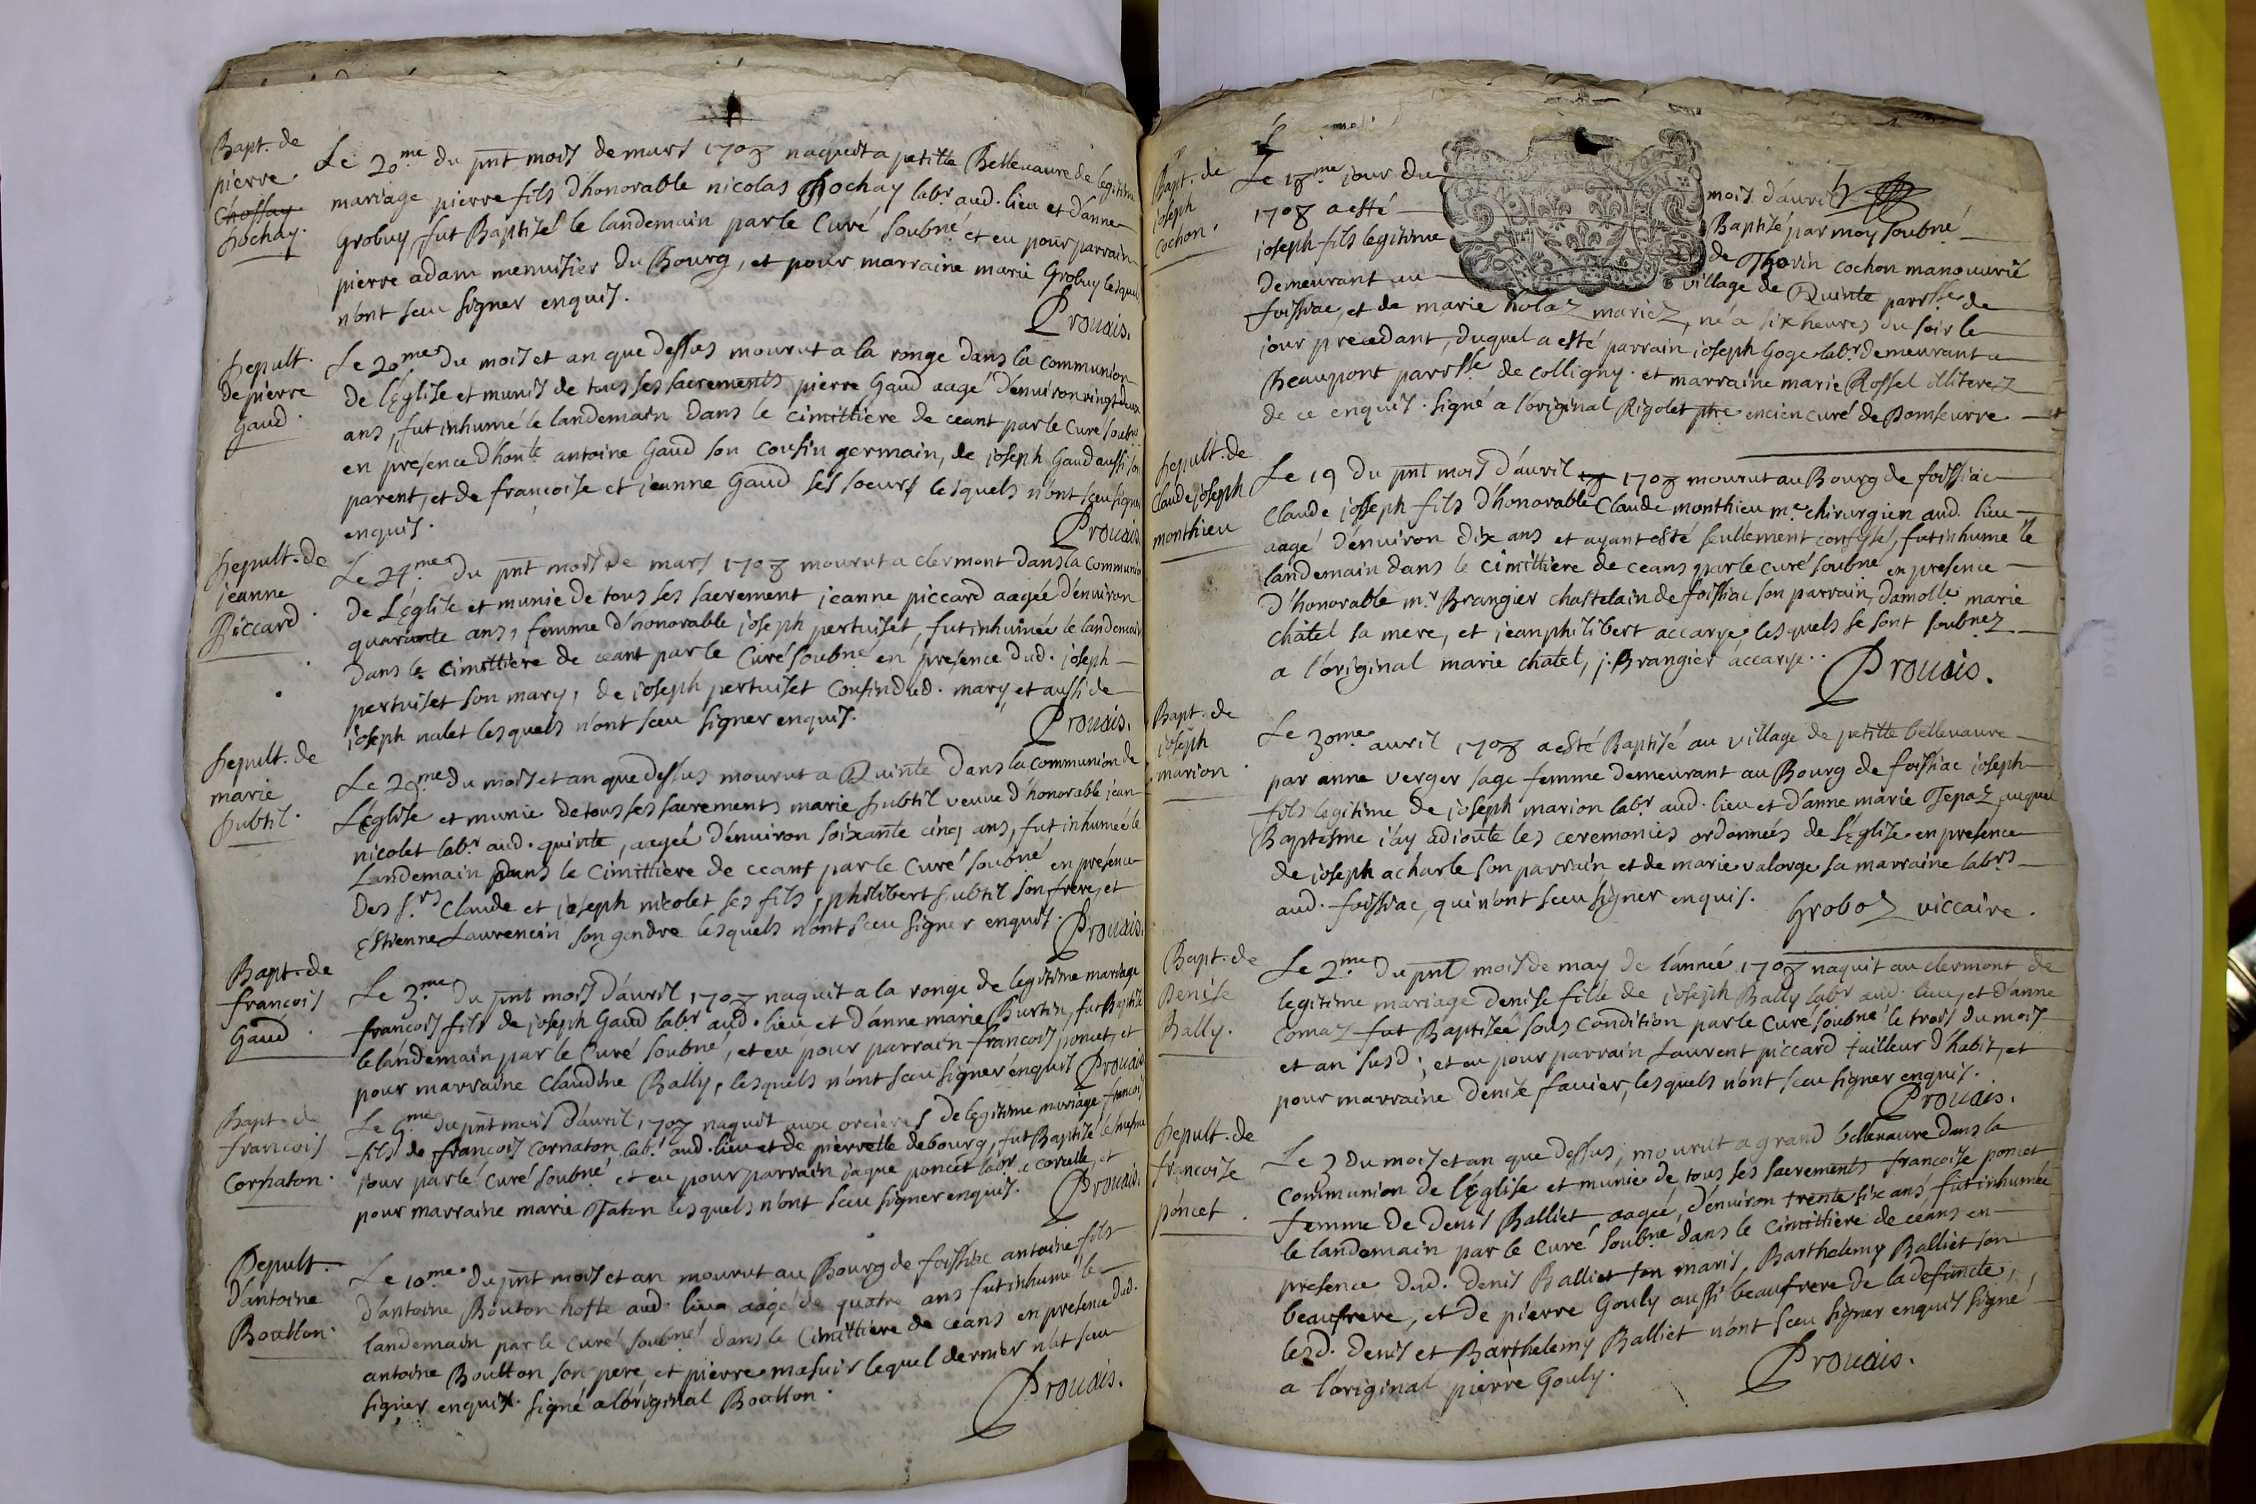 Bapt. de
pierre.
Chossay
Sochay.
Le 20.me du pnt mois de mars 1708 naquit a petitte Bellevavre de legitime
mariage pierre fils d'honorable nicolas Sochay labr. aud. lieu et d'anne
Grobuy, fut Baptisé le landemain par le Curé soubné et eu pour parrain
pierre adam menuisier du Bourg, et pour marraine marie Grobuy lesquels
n'ont sceu signer enquis.
Prouais.
Sepult.
de pierre
Gaud.
Le 20.me du mois et an que dessus mourut a la ronge dans la communion
de l'Église et munis de tous ses sacrements pierre Gaud aagé d'environ vingt deux
ans, fut inhumé le landemain dans le cimittiere de ceant par le curé soubné
en presence d'honle. antoine Gaud son cousin germain, de joseph Gaud aussi son
parent, et de francoise et jeanne Gaud ses soeurs lesquels n'ont sceu signer
enquis.
Prouais.
Sepult. de
jeanne
Piccard.
Le 24.me du pnt mois de mars 1708 mourut a clermont dans la communion
de L'église et munie de tous ses sacrement jeanne piccard aagée d'environ
quarante ans, femme d'honorable joseph pertuiset, fut inhumée le landemain
dans le cimittière de ceant par le Curé soubné en presence dud. joseph
pertuiset son mary, de joseph pertuiset cousin dud. mary, et aussi de
joseph nalet lesquels n'ont sceu signer enquis.
Prouais.
Sepult. de
marie
Subtil.
Le 29.me du mois et an que dessus mourut a Quinte dans la communion de
L'église et munie de tous ses sacrements marie Subtil veuve d'honorable jean
nicolet labr. aud. quinte, aagée d'environ soixante cinq ans, fut inhumée le
Landemain dans le cimittière de ceant par le curé soubné en presence
des s.rs Claude et joseph nicolet ses fils, philibert subtil son frere, et
Estienne Laurencin son gendre lesquels n'ont sceu signer enquis.
Prouais.
Bapt. de
francois
Gaud.
Le 3.me du pnt mois d'avril 1708 naquit a la ronge de legitime mariage
francois fils de joseph Gaud labr. aud. lieu et d'anne marie Burtin, fut Baptisé
le landemain par le Curé soubné, et eu pour parrain francois poncet, et
pour marraine Claudine Bally, lesquels n'ont sceu signer enquis
Prouais
Bapt. de
francois
Cornaton.
Le 6.me du pnt mois d'avril 1708 naquit aux orcieres de legitime mariage francois
fils de francois Cornaton labr. aud. lieu et de pierrette debourg, fut Baptisé le mesme
jour par le Curé soubné et eu pour parrain jaque poncet labr. a corcelle, et
pour marraine marie Taton lesquels n'ont sceu signer enquis.
Prouais.
Sepult.
d'antoine
Boutton.
Le 10.me du pnt mois et an mourut au Bourg de foissiac antoine fils
d'antoine Bouton hoste aud. lieu aagé de quatre ans fut inhumé le
landemain par le curé soubné dans le Cimittiere de ceans en presence dud.
antoine Boutton son pere et pierre masuir lequel dernier n'at sceu
signer enquis. signé a l'original Boutton.
Prouais.
Bapt. de
joseph
cochon.
Le 18.me jour du mois d'avril
1708 a esté Baptisé par moy soubné
joseph fils legitime de Thevin cochon manouvrié
demeurant au village de Quinte parrsse de
foissiac, et de marie nolaz mariez, né a six heures du soir le
jour precedant, duquel a esté parrain joseph Goge labr. demeurant a
Beaupont parrsse de colligny. et marraine marie Rossel illiterez
de ce enquis. signé a l'original Rigolet ptre encien curé de Domseurre
Sepult. de
Claude joseph
monthieu
Le 19 du pnt mois d'avril 1708 mourut au Bourg de foissiac
Claude josseph fils d'honorable Claude monthieu m.e chirurgien aud. lieu
aagé d'environ dix ans et ayant esté seullement confessé, fut inhumé le
landemain dans le cimittiere de ceans par le curé soubné en presence
d'honorable m.r Brangier chastelain de foissiac son parrain, damolle marie
châtel sa mere, et jean philibert accarye, lesquels se sont soubnez
a l'original marie chatel, j. Brangier accarye.
Prouais.
Bapt. de
joseph
marion.
Le 30me. avril 1708 a esté Baptisé au village de petitte bellevavre
par anne verger sage femme demeurant au Bourg de foissiac joseph
fils legitime de joseph marion labr. aud. lieu et d'anne marie Tepaz auquel
Baptesme j'ay adjouté les ceremonies ordonnées de l'Église en presence
de joseph acharle son parrain et de marie valorge sa marraine labrs.
aud. foissiac, qui n'ont sceu signer enquis.
Groboz viccaire.
Bapt. de
Denise
Bally.
Le 2.me du pnt mois de may de l'année 1708 naquit au clermont de
legitime mariage denise fille de joseph Bally labr aud. lieu, et d'anne
Comaz fut Baptisée sous condition par le curé soubné le trois du mois
et an susd; et eu pour parrain Laurent piccard tailleur d'habit, et
pour marraine denise favier, lesquels n'ont sceu signer enquis.
Prouais.
Sepult. de
francoise
poncet.
Le 3 du mois et an que dessus, mourut a grand bellevavre dans la
communion de l'Église et munie de tous ses sacrements francoise poncet
femme de denis Balliet aagée, d'environ trente six ans, fut inhumée
le landemain par le curé soubné dans le cimittiere de ceans en
presence dud. denis Balliet son maris, Barthelemy Balliet son
beaufrere, et de pierre Gouly aussi beaufrere de la defuncte,
lesd. denis et Barthelemy Balliet n'ont sceu signer enquis signé
a l'original pierre Gouly.
Prouais.